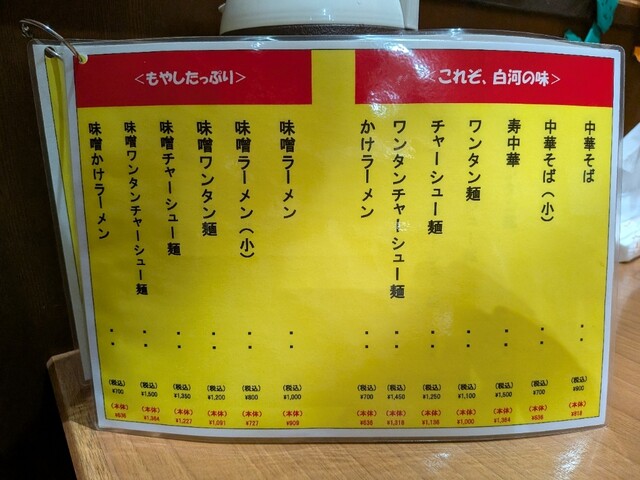 これぞ、白河の味>
中華そば : (税込) ¥900 (本体) ¥818
中華そば(小) : (税込) ¥700 (本体) ¥636
寿中華 : (税込) ¥1,500 (本体) ¥1,364
ワンタン麺 : (税込) ¥1,100 (本体) ¥1,000
チャーシュー麺 : (税込) ¥1,250 (本体) ¥1,136
ワンタンチャーシュー麺 : (税込) ¥1,450 (本体) ¥1,318
かけラーメン : (税込) ¥700 (本体) ¥636
<もやしたっぷり>
味噌ラーメン : (税込) ¥1,000 (本体) ¥909
味噌ラーメン(小) : (税込) ¥800 (本体) ¥727
味噌ワンタン麺 : (税込) ¥1,200 (本体) ¥1,091
味噌チャーシュー麺 : (税込) ¥1,350 (本体) ¥1,227
味噌ワンタンチャーシュー麺 : (税込) ¥1,500 (本体) ¥1,364
味噌かけラーメン : (税込) ¥700 (本体) ¥636